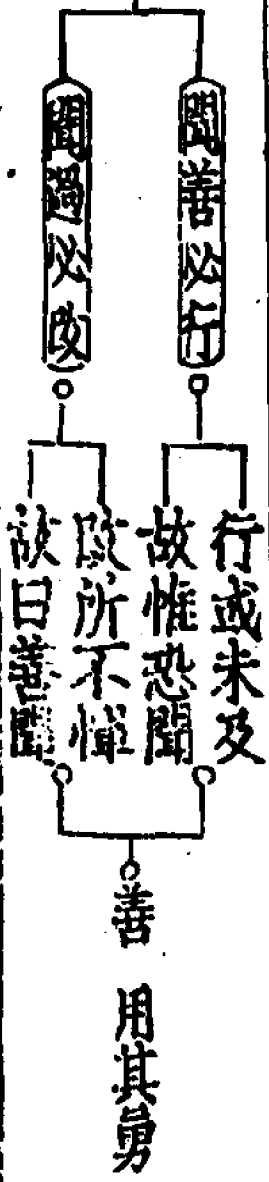 聞善必行
聞過必改
行或未及
故惟恐聞
改所不憚
故曰喜聞
善 用其勇